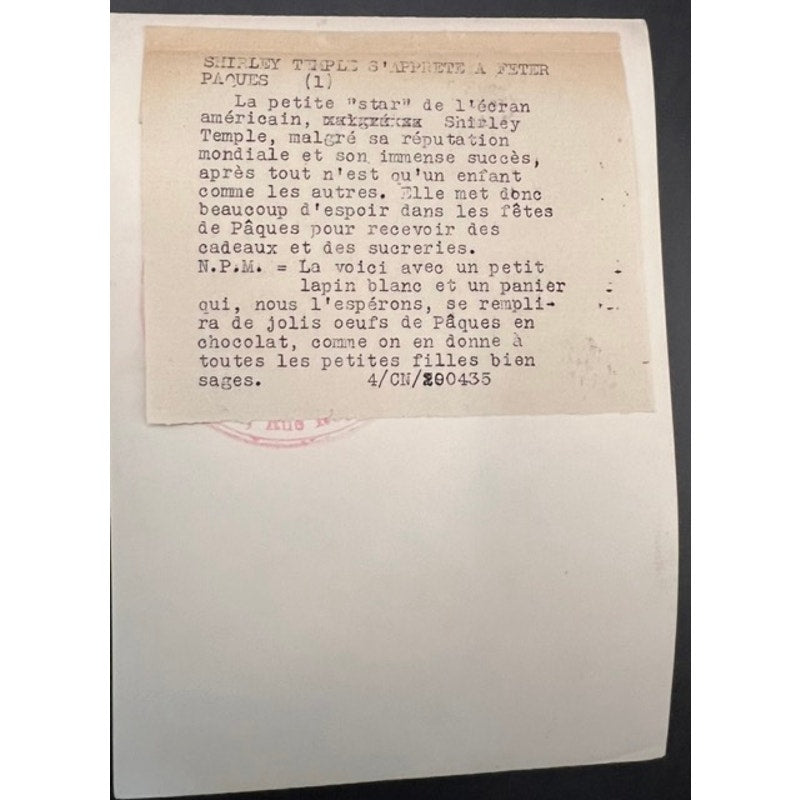 SHIRLEY TEMPLE S'APPRETE A FETER
PAQUES (1)
La petite "star" de l'écran
américain, Shirley
Temple, malgré sa réputation
mondiale et son immense succès,
après tout n'est qu'un enfant
comme les autres. Elle met donc
beaucoup d'espoir dans les fêtes
de Pâques pour recevoir des
cadeaux et des sucreries.
N.P.M. = La voici avec un petit
lapin blanc et un panier
qui, nous l'espérons, se rempli-
ra de jolis oeufs de Pâques en
chocolat, comme on en donne à
toutes les petites filles bien
sages. 4/CN/290435